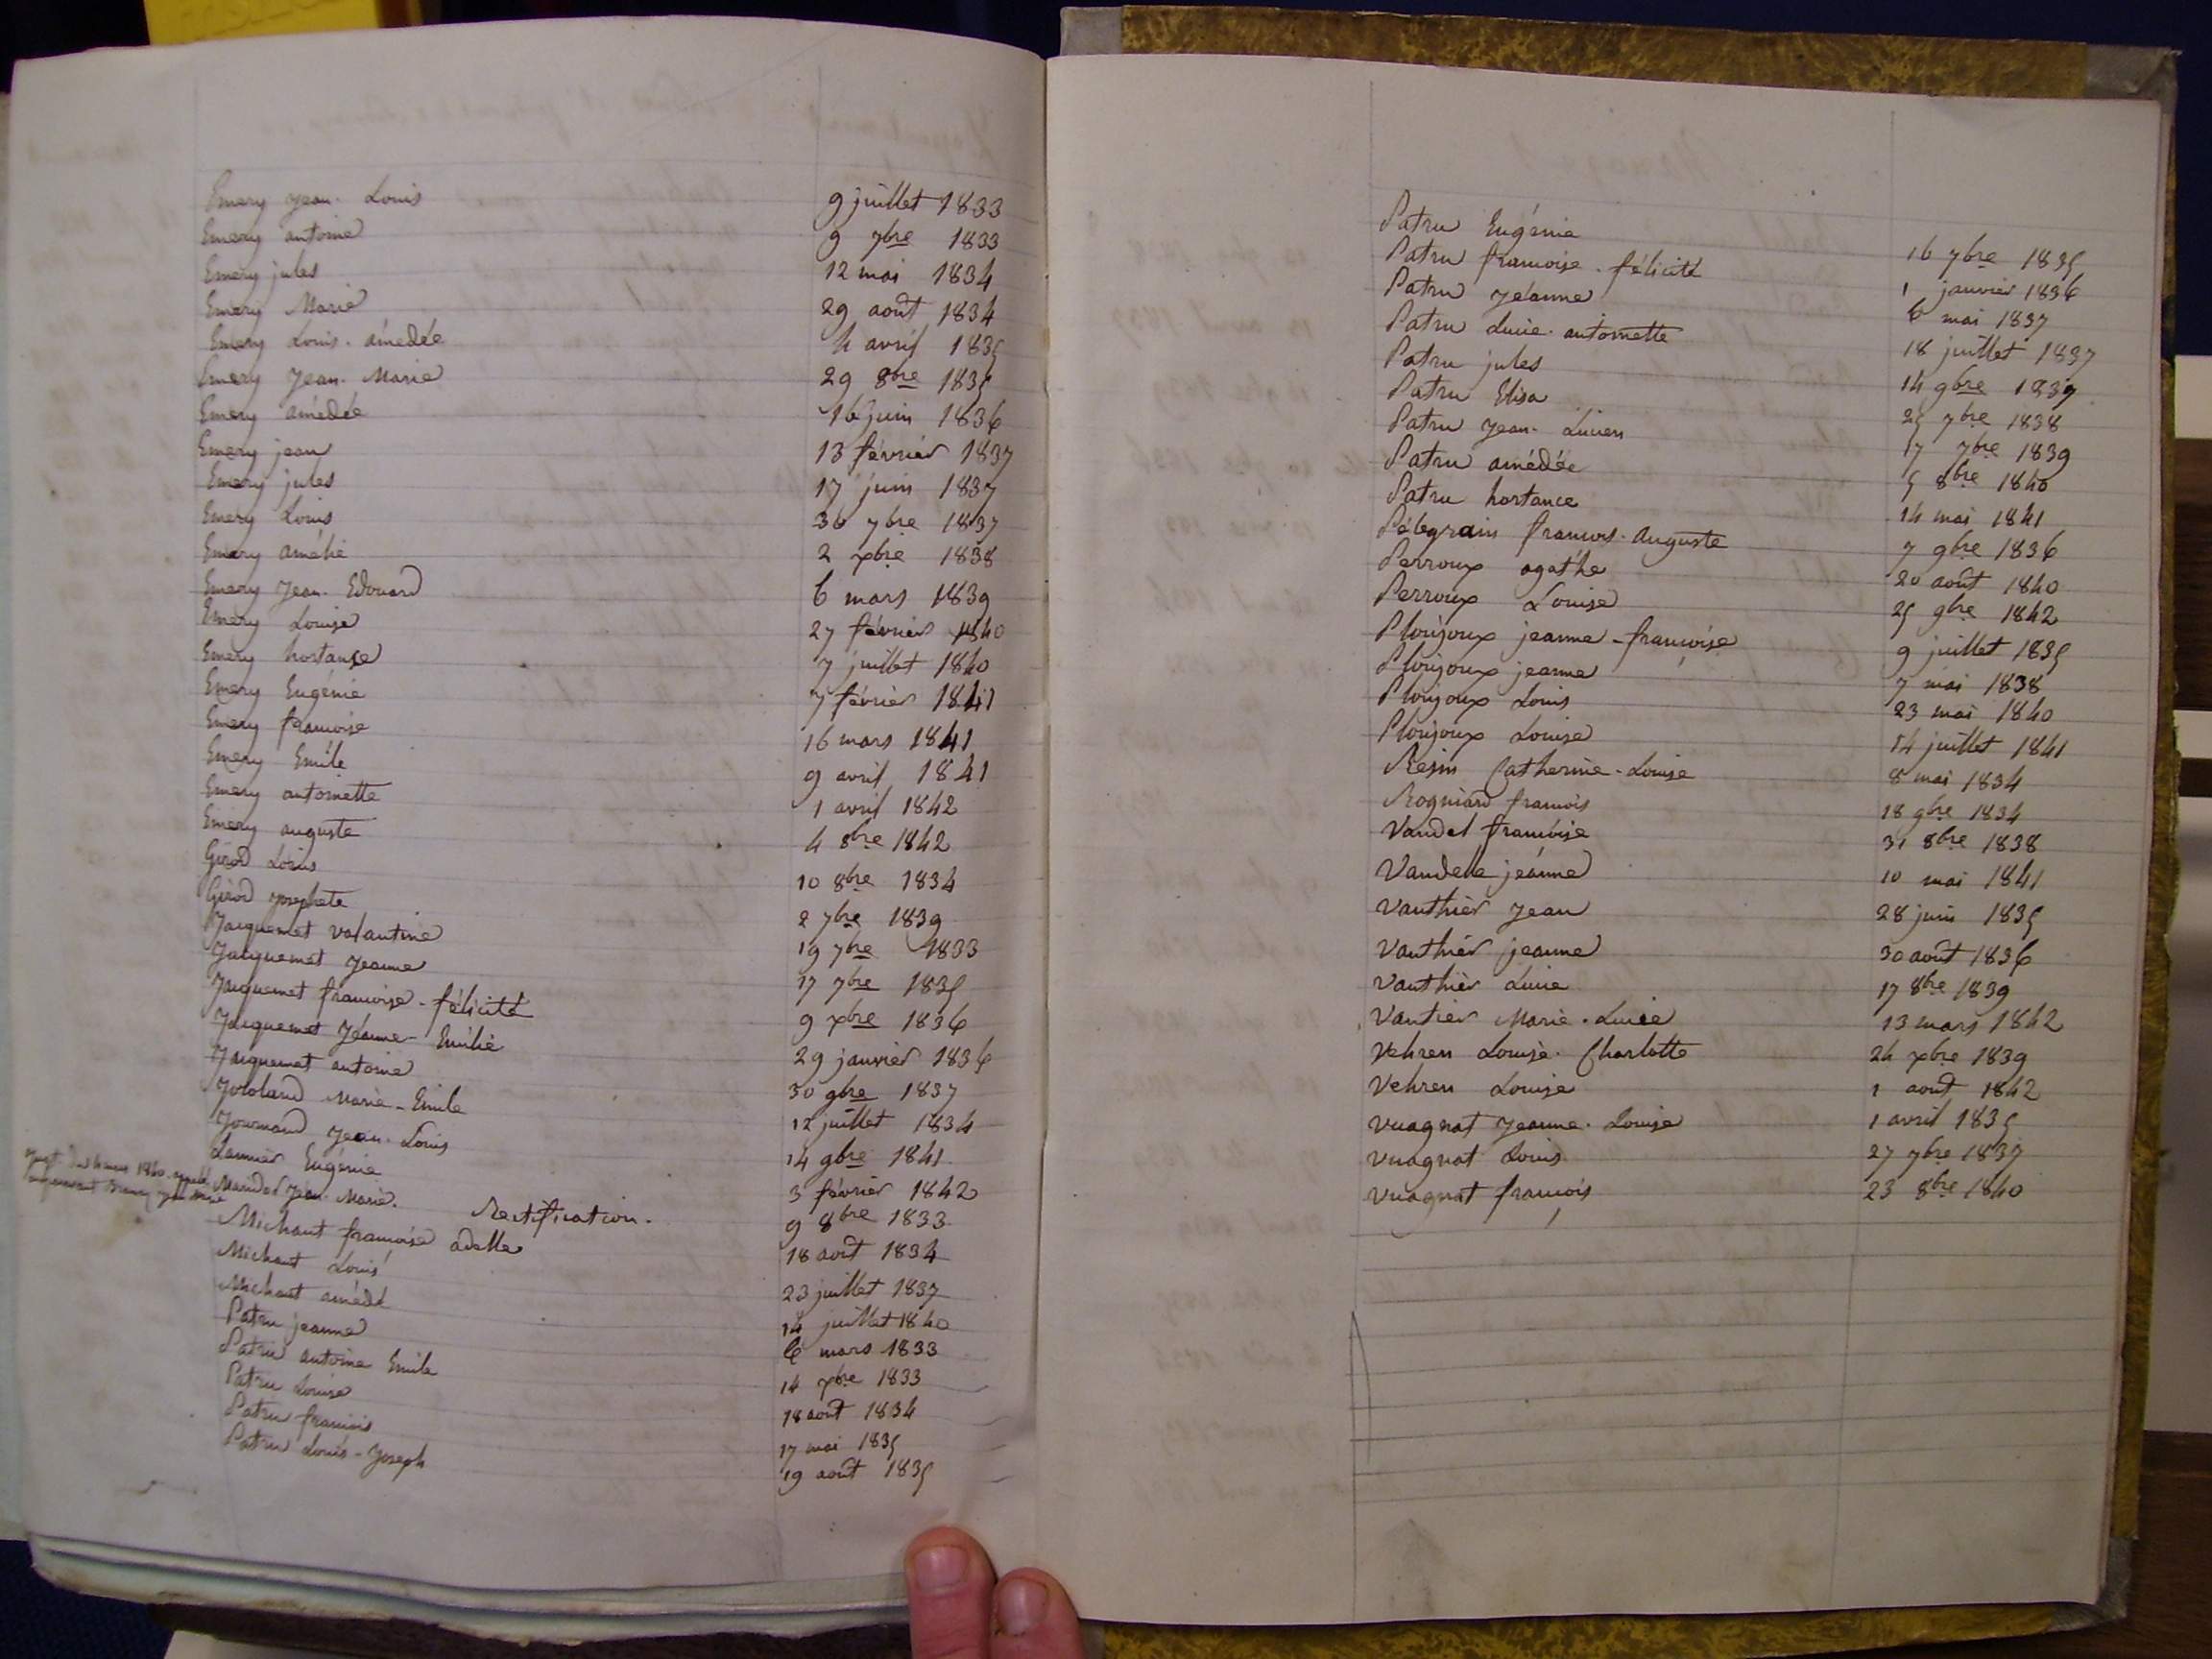 Emery Jean. Louis 9 juillet 1833
Emery antoine 9 7bre 1833
Emery jules 12 mai 1834
Emery Marie 29 août 1834
Emery Louis. amédée 4 avril 1835
Emery Jean. Marie 29 8bre 1835
Emery amédée 16 juin 1836
Emery jean 13 février 1837
Emery jules 17 juin 1837
Emery Louis 30 7bre 1837
Emery amélie 2 xbre 1838
Emery Jean. Edouard 6 mars 1839
Emery Louise 27 février 1840
Emery hortanse 7 juillet 1840
Emery Eugénie 7 février 1841
Emery francoise 16 mars 1841
Emery Emile 9 avril 1841
Emery antoinette 1 avril 1842
Emery auguste 4 8bre 1842
Girod Louis 10 8bre 1834
Girod josephete 2 7bre 1839
Jacquemet valantine 19 7bre 1833
Jacquemet Jeanne 17 7bre 1835
Jacquemet francoise - félicité 9 xbre 1836
Jacquemet Jeanne - Emilie 29 janvier 1836
Jacquemet antoine 30 9bre 1837
Marie - Emile 12 juillet 1834
Journaud Jean. Louis 14 9bre 1841
Lannier Eugénie 3 février 1842
Jean. Marie. Rectification. 9 8bre 1833
Michaut francoise adelle 18 août 1834
Michaut Louis 23 juillet 1837
Michaut amédé 14 juillet 1840
Patru jeanne 6 mars 1833
Patru antoine Emile 14 xbre 1833
Patru Louise 18 août 1834
Patru francois 17 mai 1835
Patru Louis - Joseph 19 août 1835
Patru Eugénie 16 7bre 1835
Patru francoise. félicité 1 janvier 1836
Patru Jeanne 6 mai 1837
Patru Lucie. antoinette 18 juillet 1837
Patru jules 14 9bre 1837
Patru Elisa 25 7bre 1838
Patru Jean. Lucien 17 7bre 1839
Patru amédée 5 8bre 1840
Patru hortance 14 mai 1841
Pélegrain francois. Auguste 7 9bre 1836
Perroux agathe 20 août 1840
Perroux Louise 25 9bre 1842
Ploujoux jeanne - francoise 9 juillet 1835
Ploujoux jeanne 7 mai 1838
Ploujoux Louis 23 mai 1840
Ploujoux Louise 14 juillet 1841
Resin Catherine - Louise 8 mai 1834
Rogniard francois 18 9bre 1834
Vandel francoise 31 8bre 1838
Vandelle jeanne 10 mai 1841
Vauthier Jean 28 juin 1835
Vauthier jeanne 30 août 1836
Vauthier Lucie 17 8bre 1839
Vautier Marie. Lucie 13 mars 1842
Vehren Louise. Charlotte 24 xbre 1839
Vehren Louise 1 août 1842
Vuagnat Jeanne. Louise 1 avril 1835
Vuagnat Louis 27 7bre 1837
Vuagnat francois 23 8bre 1840